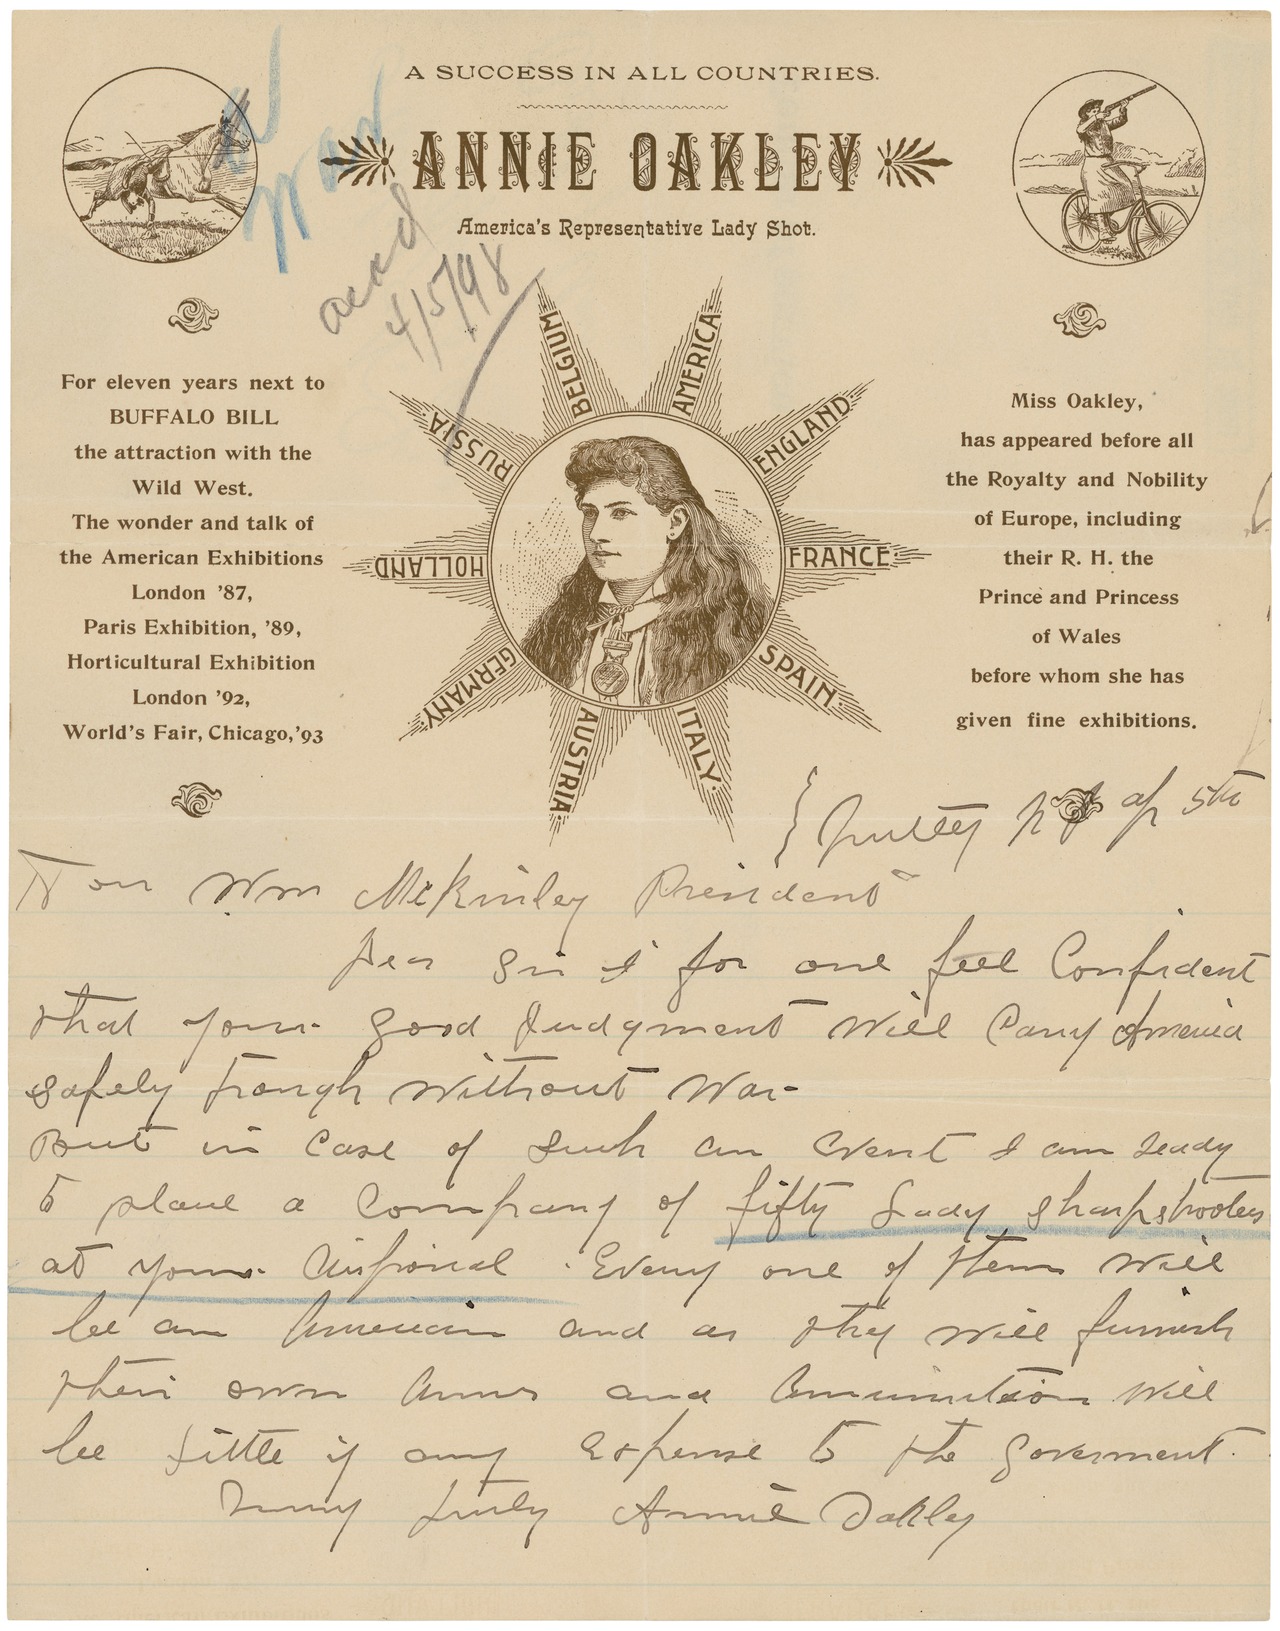 A SUCCESS IN ALL COUNTRIES.
ANNIE OAKLEY
America's Representative Lady Shot.
War
ackd
4/5/98
For eleven years next to
BUFFALO BILL
the attraction with the
Wild West.
The wonder and talk of
the American Exhibitions
London '87,
Paris Exhibition, '89,
Horticultural Exhibition
London '92,
World's Fair, Chicago, '93
BELGIUM
AMERICA
ENGLAND
FRANCE
SPAIN
ITALY
AUSTRIA
GERMANY
HOLLAND
RUSSIA
Miss Oakley,
has appeared before all
the Royalty and Nobility
of Europe, including
their R. H. the
Prince and Princess
of Wales
before whom she has
given fine exhibitions.
Nutley N J ap 5th
Hon Wm McKinley President
Dear Sir I for one feel Confident
that your good judgment will carry America
safely trough without War-
But in case of such an event I am ready
to place a Company of fifty lady sharpshooters
at your disposal. Every one of them will
be an American and as they will furnish
their own Arms and Ammunition will
be little if any expense to the goverment.
Very truly Annie Oakley